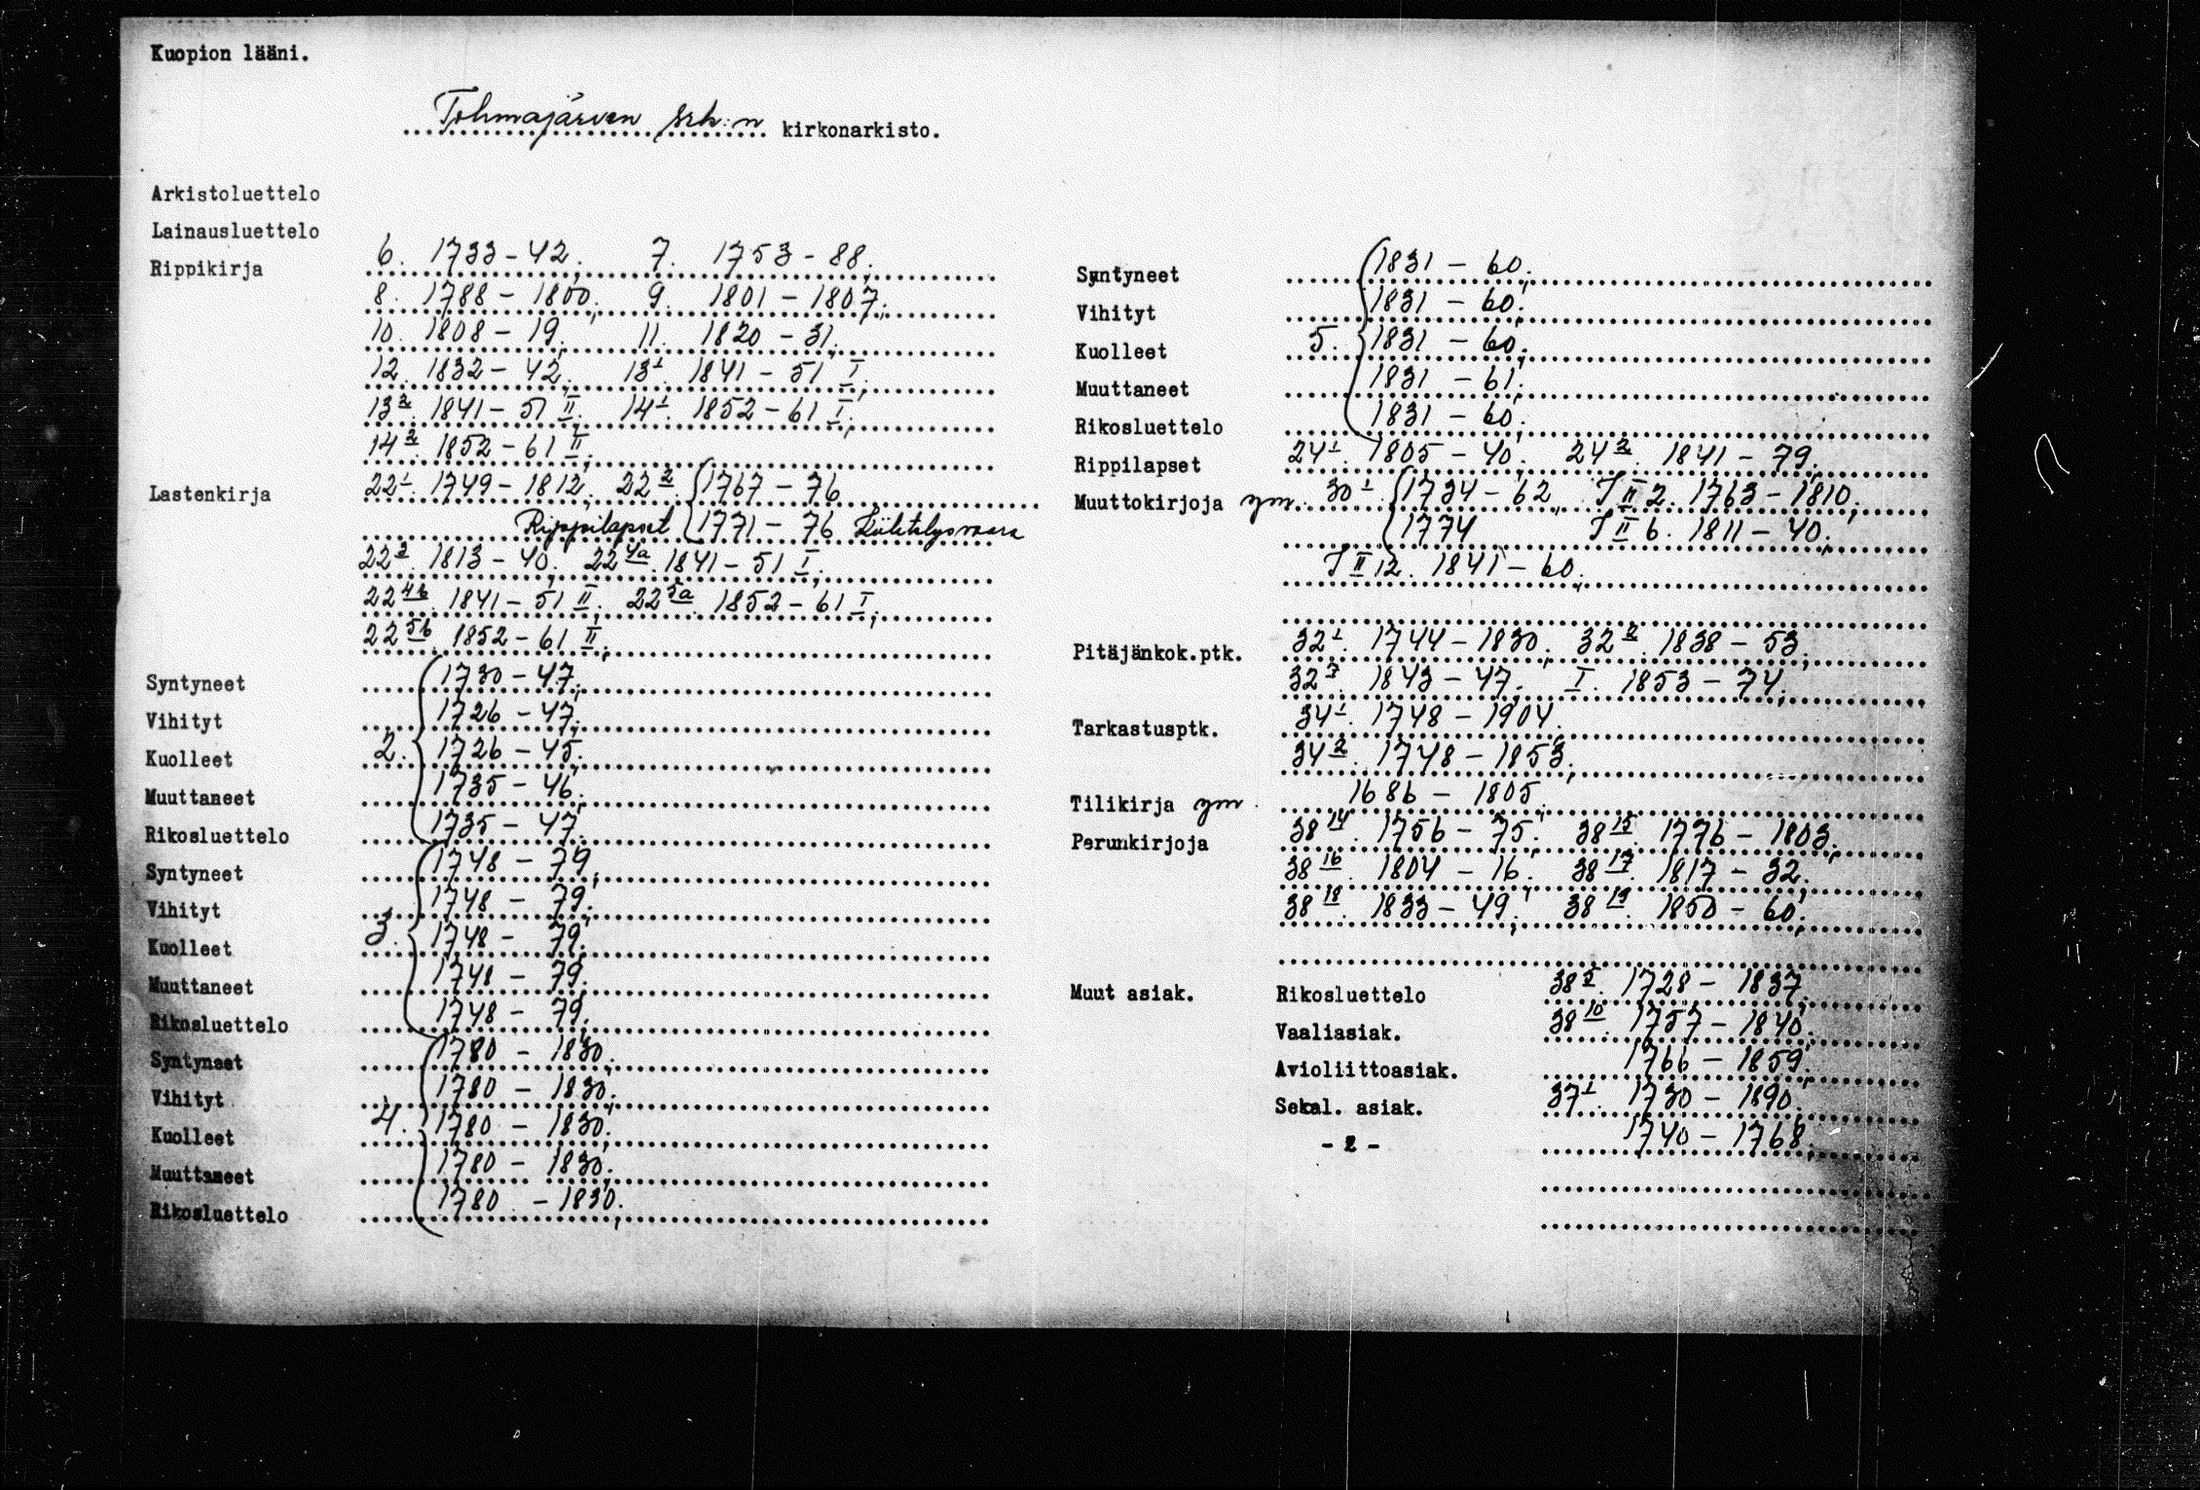 Kuopion lääni.
Tohmajärven srk:n kirkonarkisto.
Arkistoluettelo
Lainausluettelo
Rippikirja 6. 1733-42; 7. 1753-88;
8. 1788-1800; 9. 1801-1807;
10. 1808-19; 11. 1820-31;
12. 1832-42; 13¹. 1841-51 I;
13². 1841-51 II; 14¹. 1852-61 I;
14². 1852-61 II;
Lastenkirja 22¹. 1749-1812; 22². 1767-76
Rippilapset 1771-76 Kiihtelysvaara
22³. 1813-40; 22⁴ᵃ. 1841-51 I;
22⁴ᵇ. 1841-51 II; 22⁵ᵃ. 1852-61 I;
22⁵ᵇ. 1852-61 II;
Syntyneet 1730-47;
Vihityt 1726-47;
Kuolleet 2. 1726-45;
Muuttaneet 1735-46;
Rikosluettelo 1735-47;
Syntyneet 1748-79;
Vihityt 1748-79;
Kuolleet 3. 1748-79;
Muuttaneet 1748-79;
Rikosluettelo 1748-79;
Syntyneet 1780-1830;
Vihityt 1780-1830;
Kuolleet 4. 1780-1830;
Muuttaneet 1780-1830;
Rikosluettelo 1780-1830;
Syntyneet 1831-60;
Vihityt 1831-60;
Kuolleet 5. 1831-60;
Muuttaneet 1831-61;
Rikosluettelo 1831-60;
Rippilapset 24¹. 1805-40; 24². 1841-79;
Muuttokirjoja ym. 30¹. 1734-62, I II 2. 1763-1810;
1774 I II 6. 1811-40;
I II 12. 1841-60;
Pitäjänkok.ptk. 32¹. 1744-1830; 32². 1838-53;
32³. 1843-47; I. 1853-74;
Tarkastusptk. 34¹. 1748-1904;
34². 1748-1853;
Tilikirja ym. 1686-1805;
Perunkirjoja 38¹⁴. 1756-75; 38¹⁵. 1776-1803;
38¹⁶. 1804-16; 38¹⁷. 1817-32;
38¹⁸. 1833-49; 38¹⁹. 1850-60;
Muut asiak. Rikosluettelo 38⁵. 1728-1837;
Vaaliasiak. 38¹⁰. 1757-1840;
Avioliittoasiak. 1766-1859;
Sekal. asiak. 37¹. 1730-1890;
- 2 - 1740-1768;